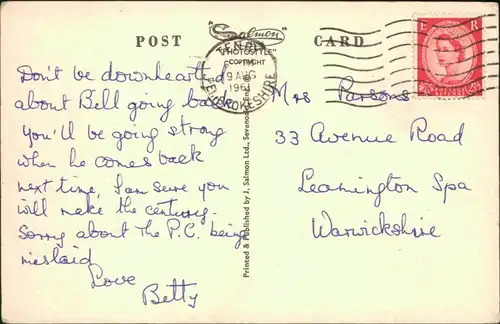 POST
"Salmon"
"PHOTOSTYLE"
COPYRIGHT
CARD
E R
9 AUG
PEMBROKESHIRE
Don't be downhearted
about Bell going back
you'll be going strong
when he comes back
next time, I am sure you
will make the century.
Sorry about the P.C. being
mislaid
Love
Betty
Printed & Published by J. Salmon Ltd., Sevenoaks
Mrs Parsons
33 Avenue Road
Leamington Spa
Warwickshire